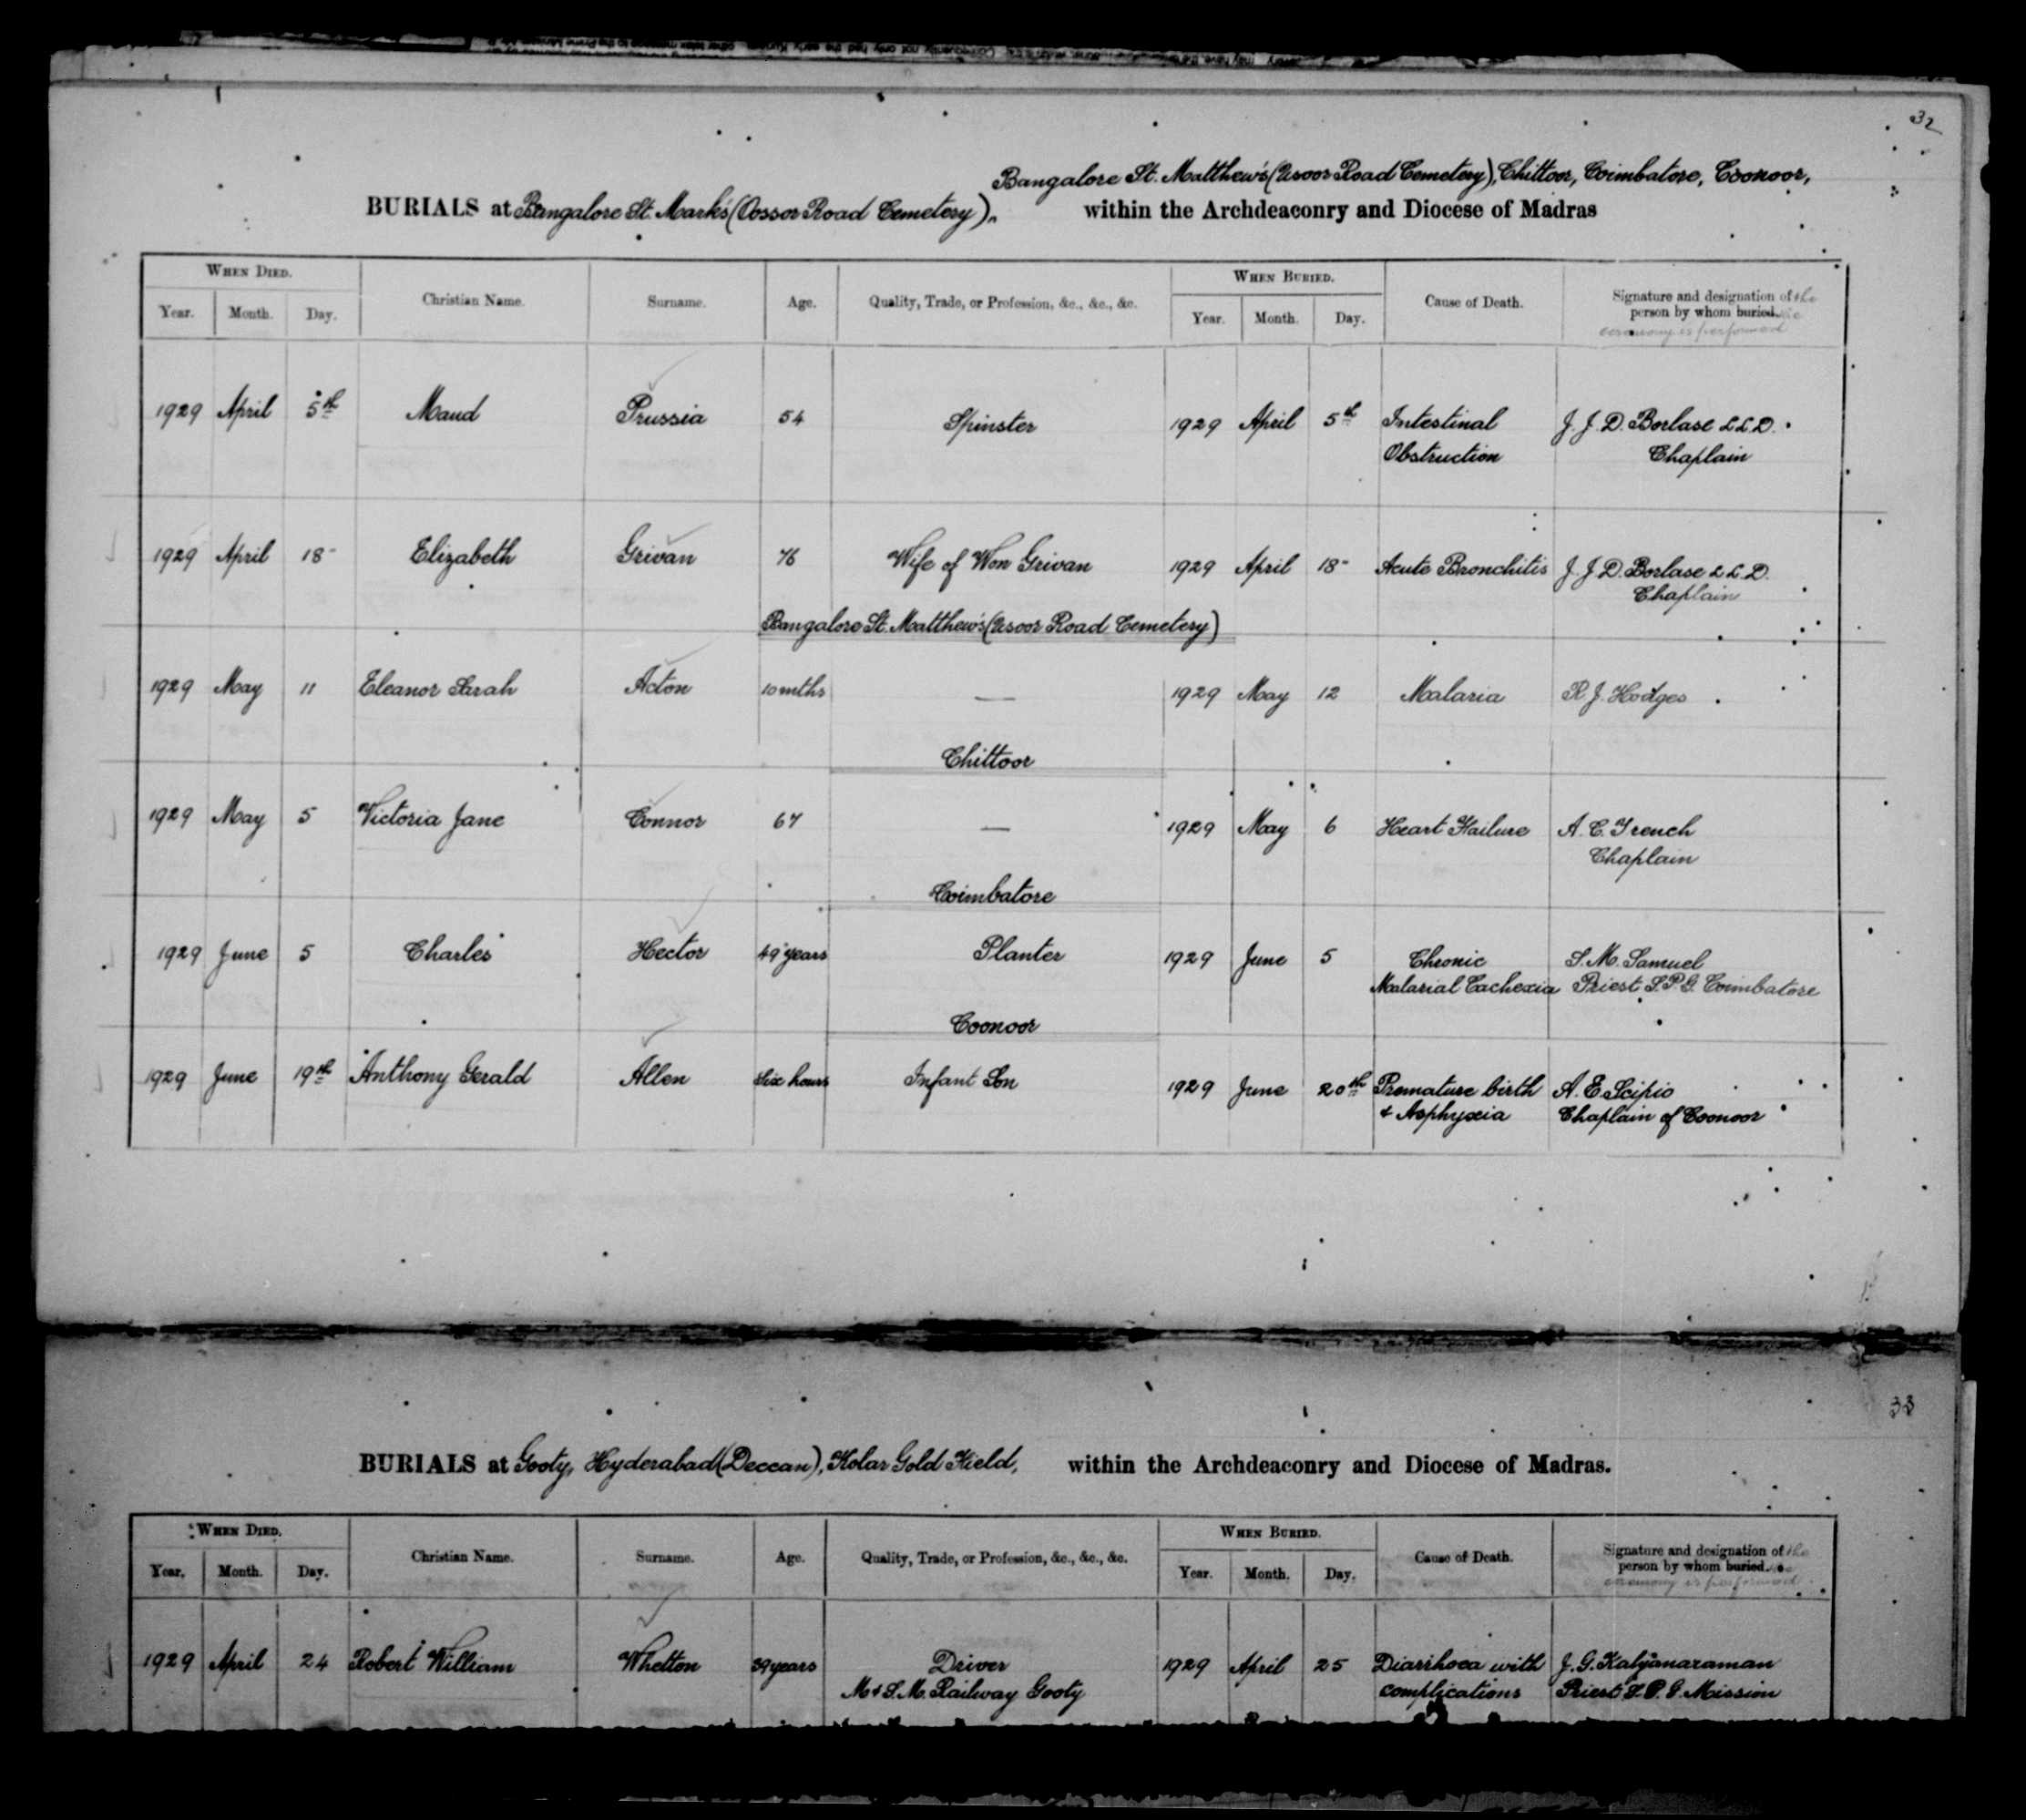 32
Bangalore St. Matthew's (Usoor Road Cemetery), Chittoor, Coimbatore, Coonoor,
BURIALS at Bangalore St. Mark's (Oossor Road Cemetery), within the Archdeaconry and Diocese of Madras
WHEN DIED. Christian Name. Surname. Age. Quality, Trade, or Profession, &c., &c., &c. WHEN BURIED. Cause of Death. Signature and designation of the
Year. Month. Day. Year. Month. Day. person by whom buried. the
ceremony is performed
1929 April 5th Maud Prussia 54 Spinster 1929 April 5th Intestinal J. J. D. Borlase LL.D.
Obstruction Chaplain
1929 April 18 Elizabeth Grivan 76 Wife of Wm Grivan 1929 April 18 Acute Bronchitis J. J. D. Borlase LL.D.
Chaplain
Bangalore St. Matthew's (Usoor Road Cemetery)
1929 May 11 Eleanor Sarah Acton 10 mths — 1929 May 12 Malaria R. J. Hodges
Chittoor
1929 May 5 Victoria Jane Connor 67 — 1929 May 6 Heart Failure A. C. French
Chaplain
Coimbatore
1929 June 5 Charles Hector 49 years Planter 1929 June 5 Chronic S. M. Samuel
Malarial Cachexia Priest S.P.G. Coimbatore
Coonoor
1929 June 19th Anthony Gerald Allen Six hours Infant Son 1929 June 20th Premature birth A. E. Scipio
& Asphyxia Chaplain of Coonoor
33
BURIALS at Gooty, Hyderabad (Deccan), Kolar Gold Field, within the Archdeaconry and Diocese of Madras.
WHEN DIED. Christian Name. Surname. Age. Quality, Trade, or Profession, &c., &c., &c. WHEN BURIED. Cause of Death. Signature and designation of the
Year. Month. Day. Year. Month. Day. person by whom buried. the
ceremony is performed
1929 April 24 Robert William Whetton 39 years Driver 1929 April 25 Diarrhoea with J. G. Kalyanaraman
M & S. M. Railway Gooty complications Priest S. P. G. Mission